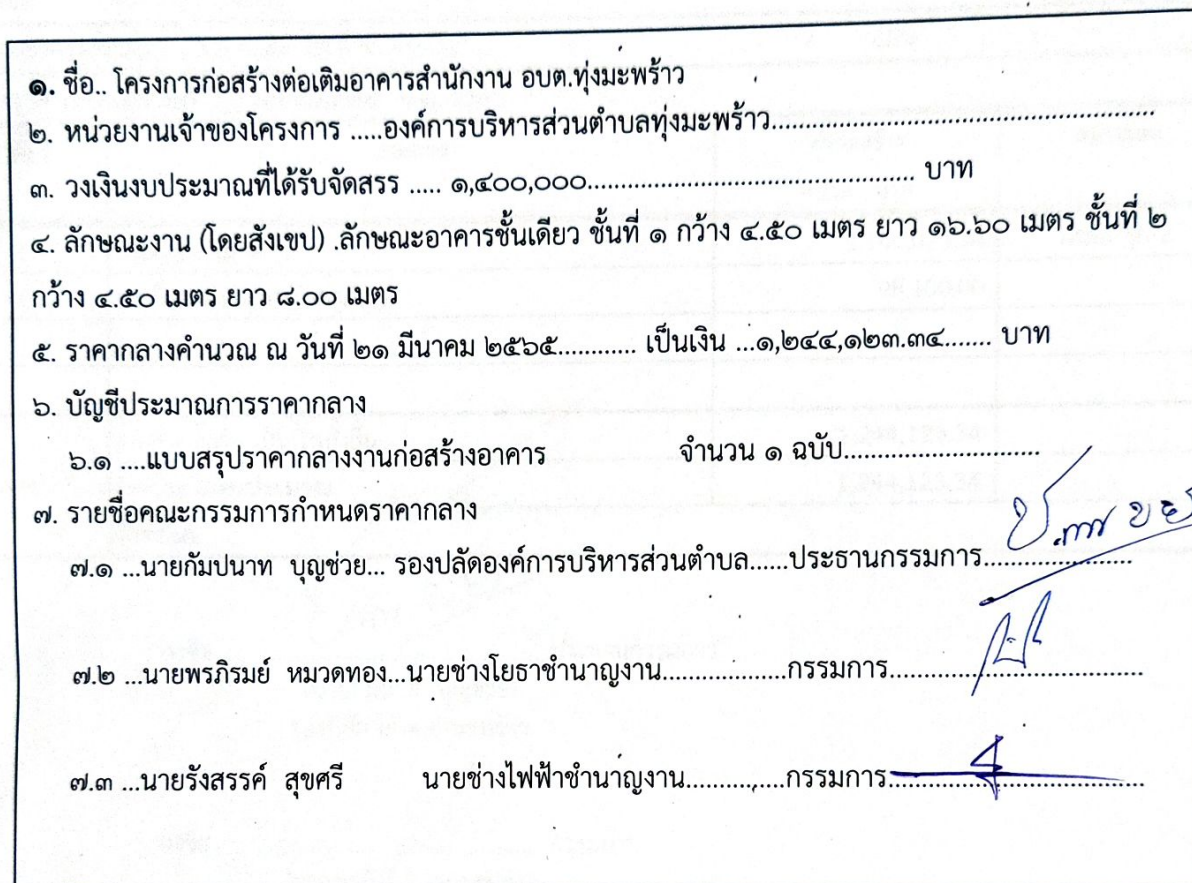 ๑. ชื่อ.. โครงการก่อสร้างต่อเติมอาคารสำนักงาน อบต.ทุ่งมะพร้าว
๒. หน่วยงานเจ้าของโครงการ .....องค์การบริหารส่วนตำบลทุ่งมะพร้าว..........................................................
๓. วงเงินงบประมาณที่ได้รับจัดสรร ..... ๑,๔๐๐,๐๐๐.................................................. บาท
๔. ลักษณะงาน (โดยสังเขป) .ลักษณะอาคารชั้นเดียว ชั้นที่ ๑ กว้าง ๔.๕๐ เมตร ยาว ๑๖.๖๐ เมตร ชั้นที่ ๒
กว้าง ๔.๕๐ เมตร ยาว ๘.๐๐ เมตร
๕. ราคากลางคำนวณ ณ วันที่ ๒๑ มีนาคม ๒๕๖๕............ เป็นเงิน ...๑,๒๔๔,๑๒๓.๓๔....... บาท
๖. บัญชีประมาณการราคากลาง
๖.๑ ....แบบสรุปราคากลางงานก่อสร้างอาคาร จำนวน ๑ ฉบับ..............................
๗. รายชื่อคณะกรรมการกำหนดราคากลาง
๗.๑ ...นายกัมปนาท บุญช่วย... รองปลัดองค์การบริหารส่วนตำบล......ประธานกรรมการ.......................
๗.๒ ...นายพรภิรมย์ หมวดทอง...นายช่างโยธาชำนาญงาน...................กรรมการ.......................................
๗.๓ ...นายรังสรรค์ สุขศรี นายช่างไฟฟ้าชำนาญงาน...............กรรมการ.......................................